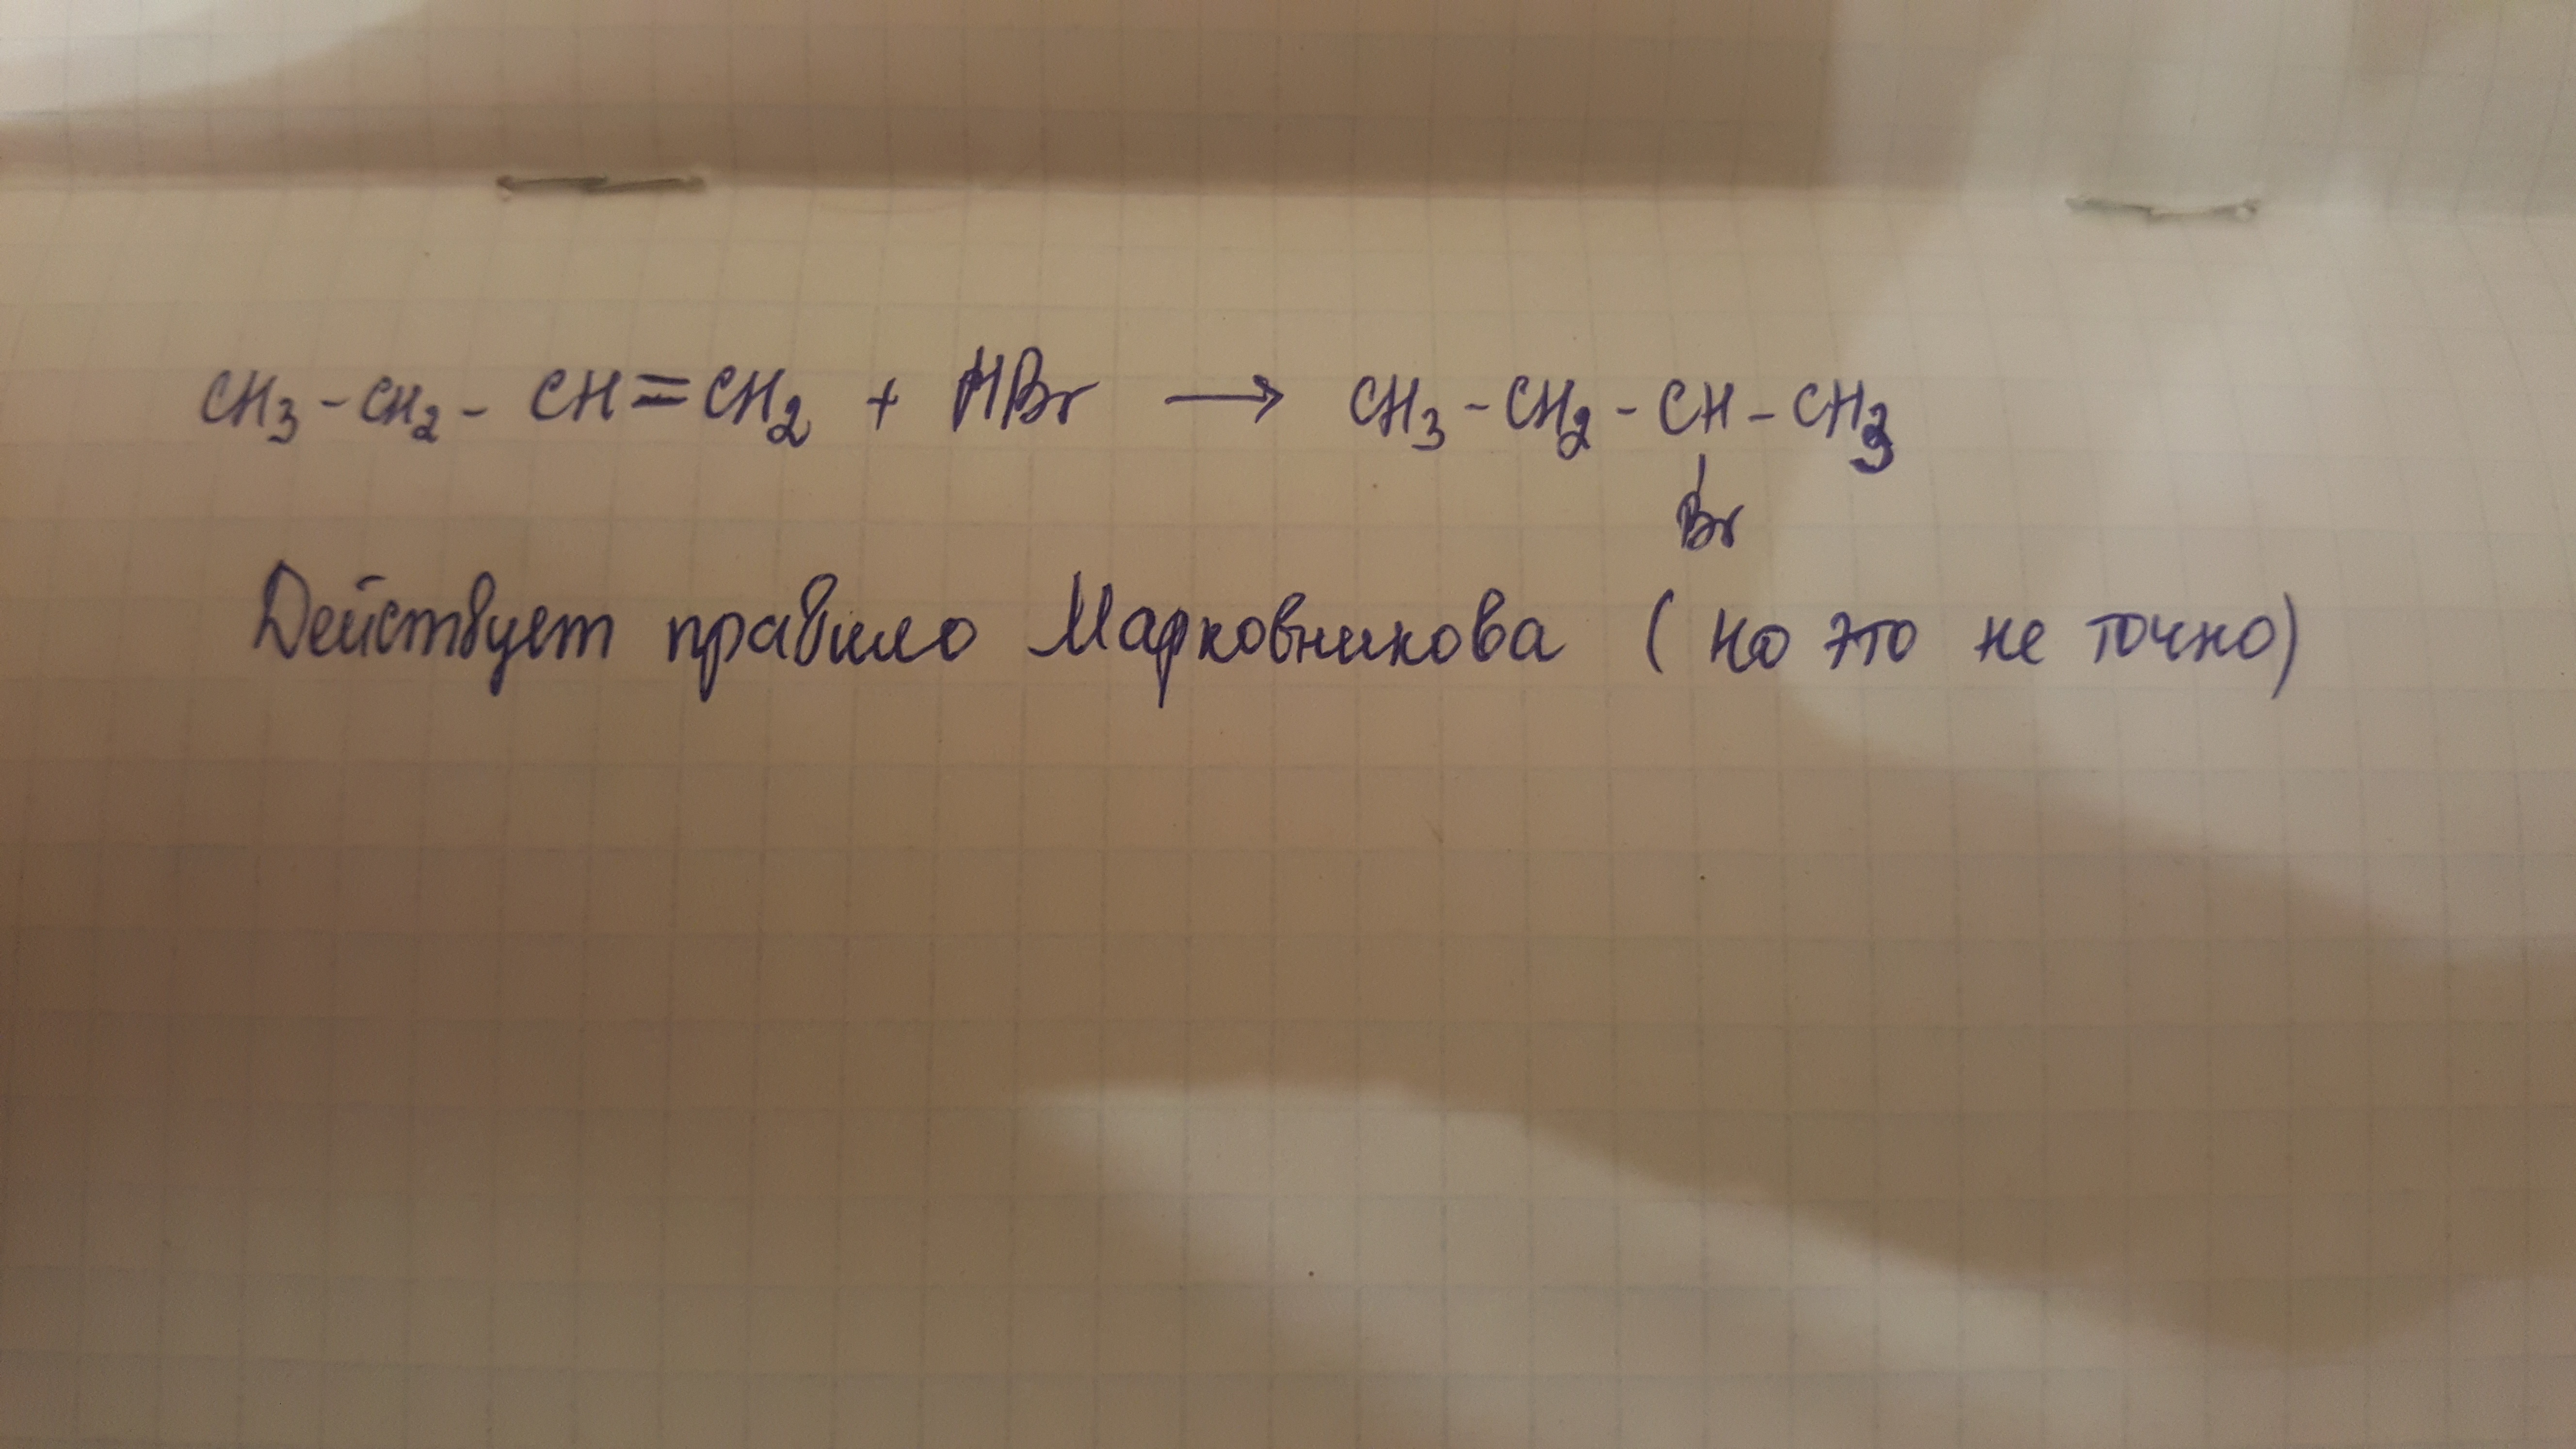 CH3 - CH2 - CH = CH2 + HBr → CH3 - CH2 - CH - CH3
Br
Действует правило Марковникова (но это не точно)